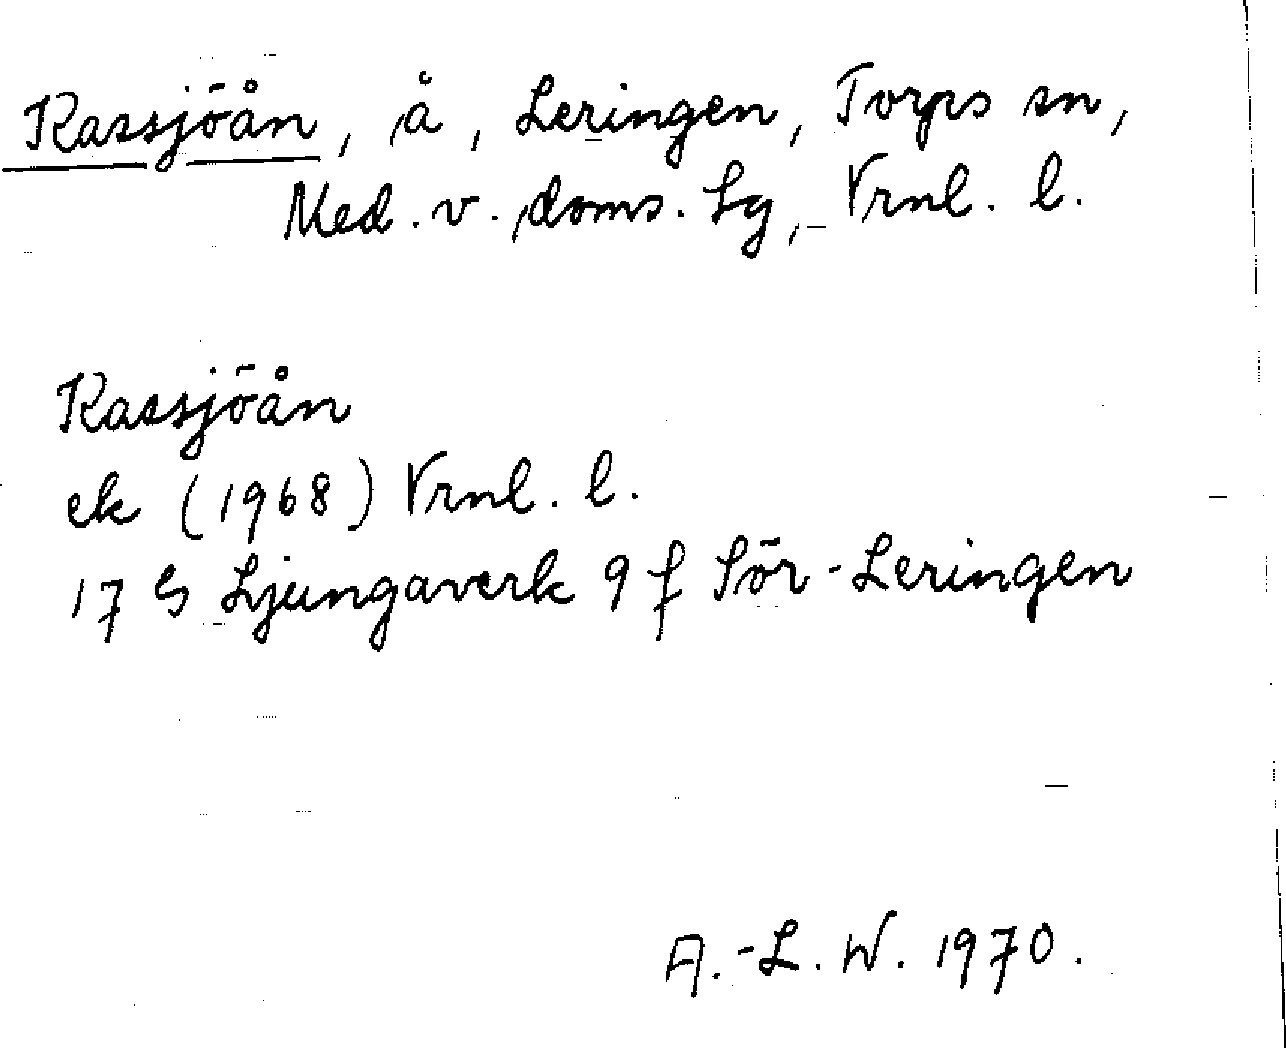 Kassjöån, å, Leringen, Torps sn,
Med. v. doms. Lg, Vrnl. l.
Kassjöån
ek (1968) Vrnl. l.
17 G Ljungaverk 9 f Sör-Leringen
A.-L. W. 1970.